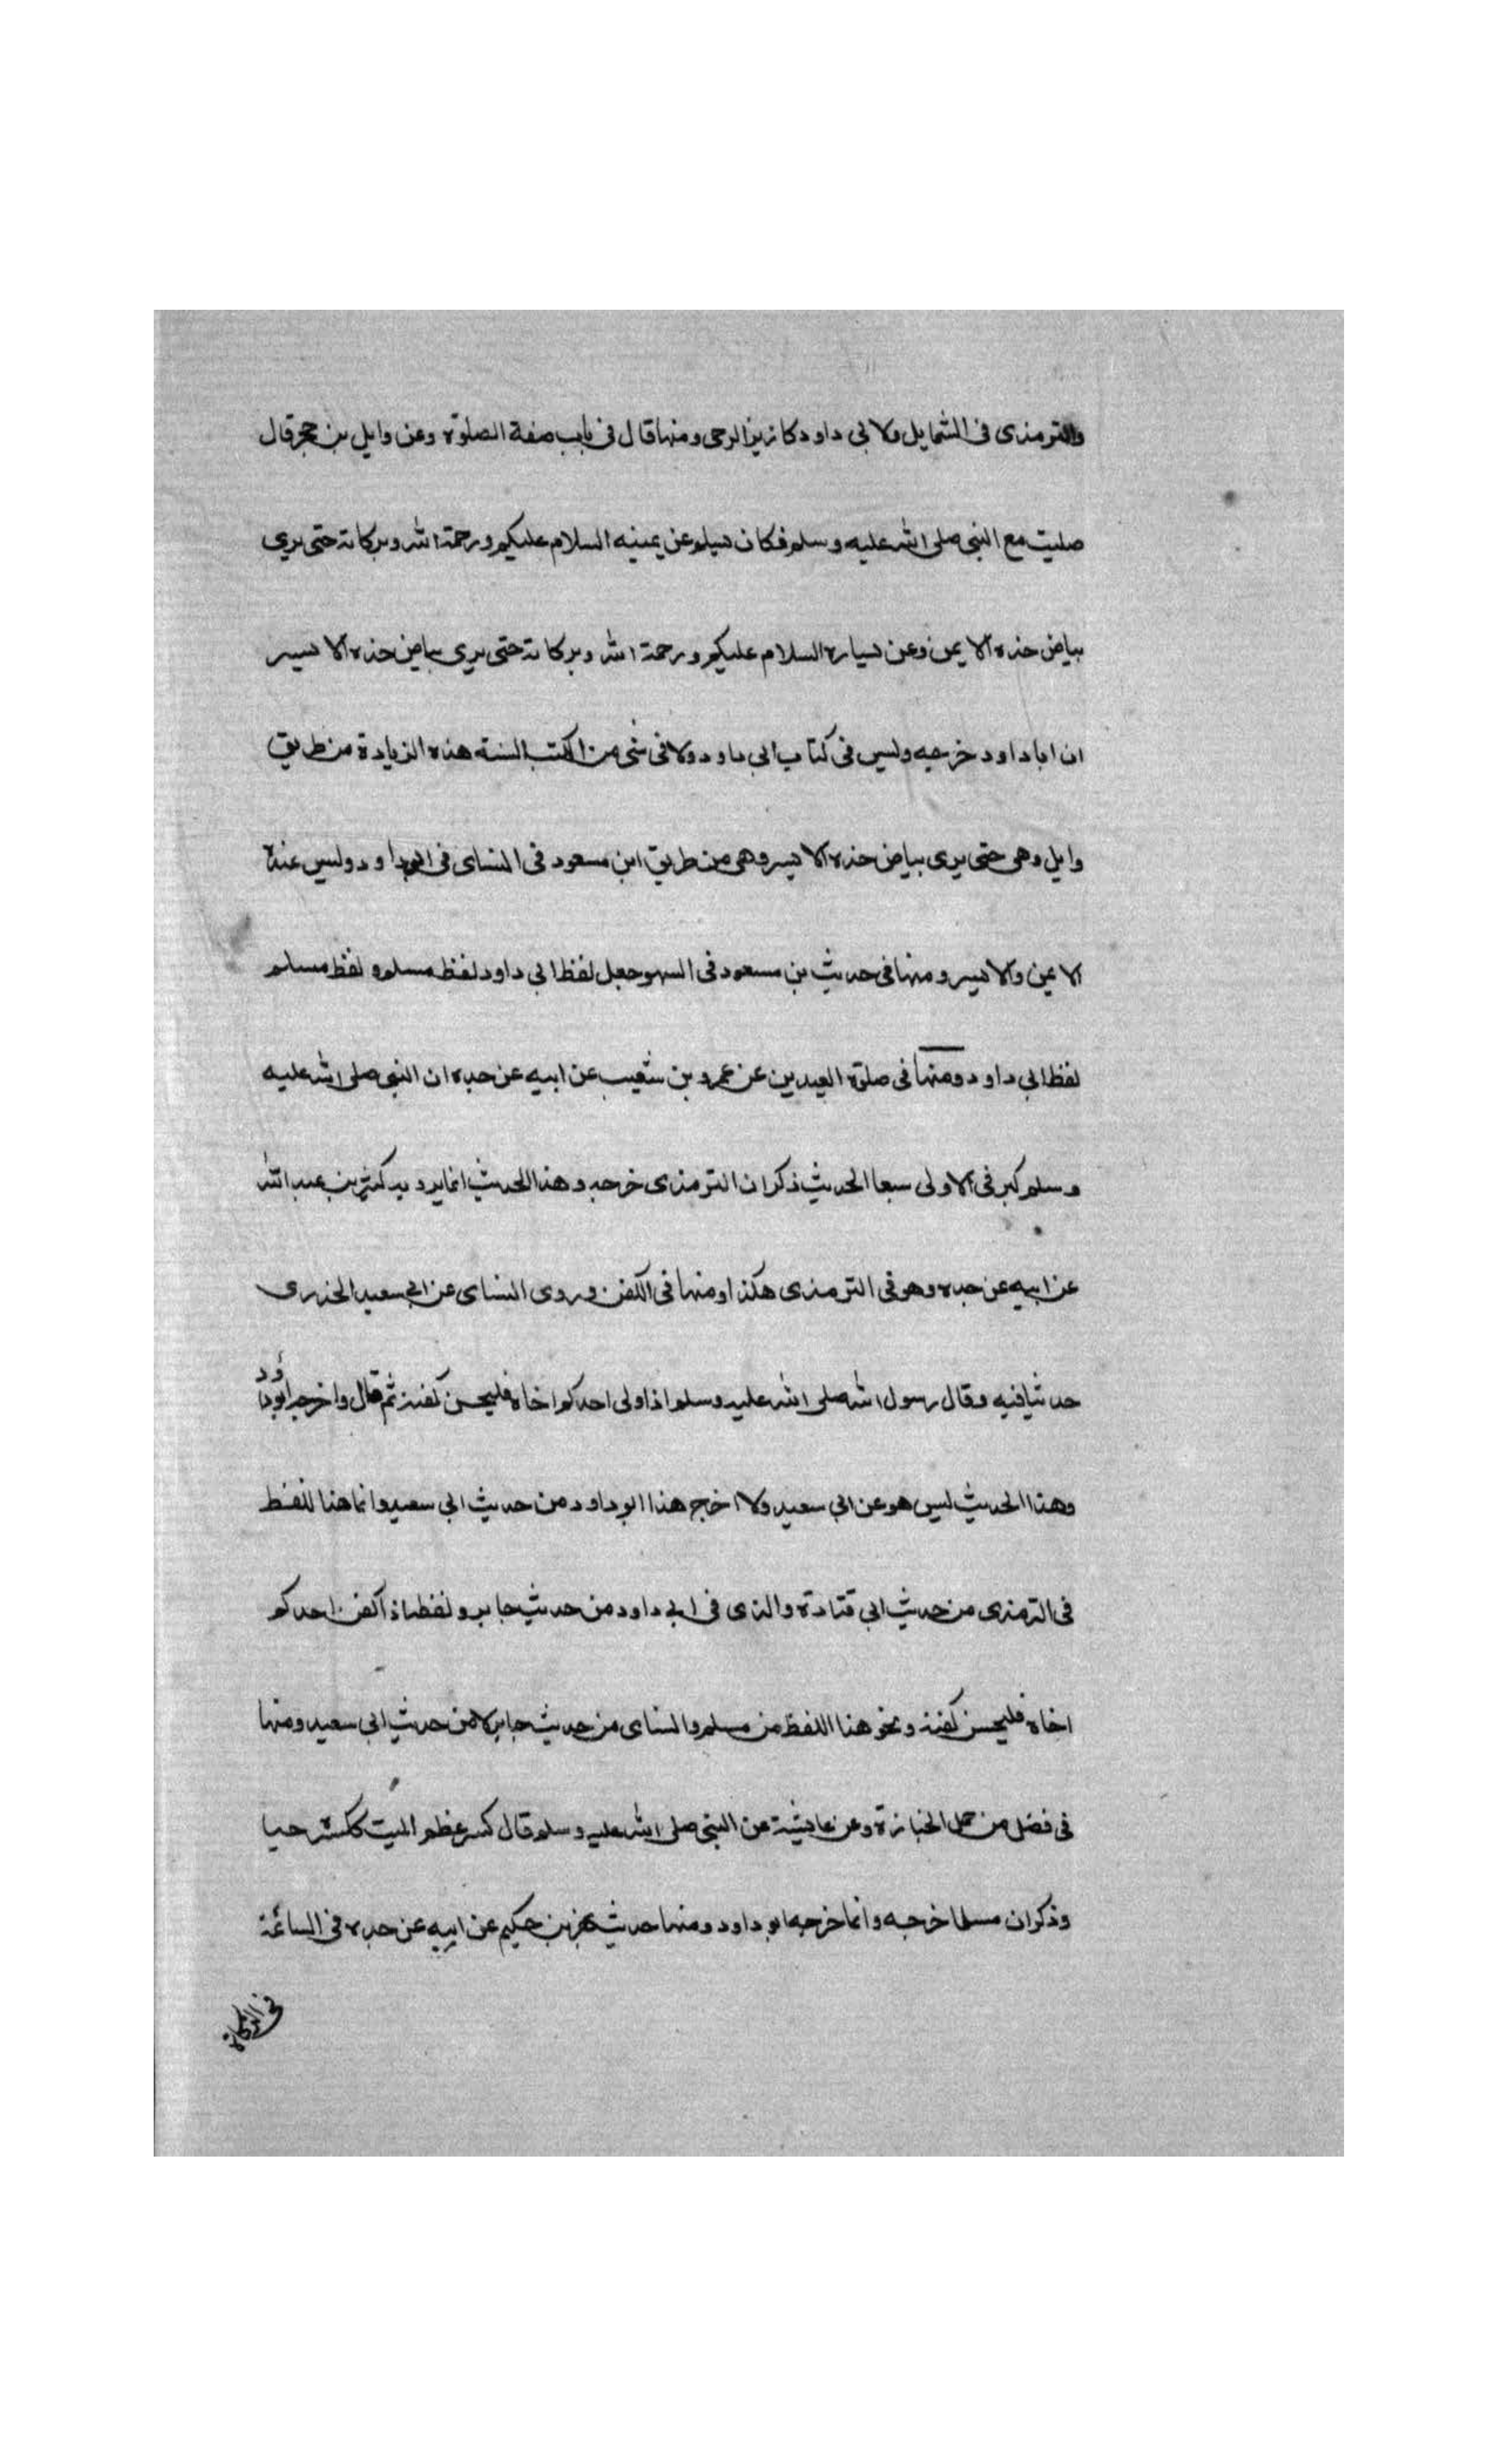 والترمذى فى الشمايل ولابى داود كازيز الرحى ومنها قال فى باب صفة الصلوة وعن وايل بن حجر قال
صليت مع النبى صلى الله عليه وسلم فكان يسلم عن يمينه السلام عليكم ورحمة الله وبركاته حتى يرى
بياض خده الايمن وعن يساره السلام عليكم ورحمة الله وبركاته حتى يرى بياض خده الايسر
ان اباداود خرجه وليس فى كتاب ابى داود ولا فى شى من الكتب الستة هذه الزيادة من طريق
وايل وهى حتى يرى بياض خده الايسر وهى من طريق ابن مسعود فى النساى فى ابوداود وليس عنده
الايمن والايسر ومنها فى حديث بن مسعود فى السهو جعل لفظ ابى داود لفظ مسلم ولفظ مسلم
لفظ ابى داود ومنها فى صلوة العيدين عن عمرو بن شعيب عن ابيه عن جده ان النبى صلى الله عليه
وسلم كبر فى الاولى سبعا الحديث ذكر ان الترمذى خرجه وهذا الحديث انما يرويه كثير بن عبد الله
عن ابيه عن جده وهو فى الترمذى هكذا ومنها فى الكفن وروى النساى عن ابى سعيد الخدرى
حديثا فيه وقال رسول الله صلى الله عليه وسلم اذا ولى احدكم اخاه فليحسن كفنه ثم قال واخرجه ابوداود
وهذا الحديث ليس هو عن ابى سعيد ولا اخرج هذا ابو داود من حديث ابى سعيد وانما هنا اللفظ
فى الترمذى من حديث ابى قتادة والذى فى ابى داود من حديث جابر ولفظه اذا كفن احدكم
اخاه فليحسن كفنه ونحو هذا اللفظ من مسلم والنساى من حديث جابر لا من حديث ابى سعيد ومنها
فى فضل من حمل الجنازة وعن عايشة عن النبى صلى الله عليه وسلم قال كسر عظم الميت ككسره حيا
وذكر ان مسلما خرجه وانما خرجه ابو داود ومنها حديث بهز بن حكيم عن ابيه عن جده فى السائمة
فى الزكاة